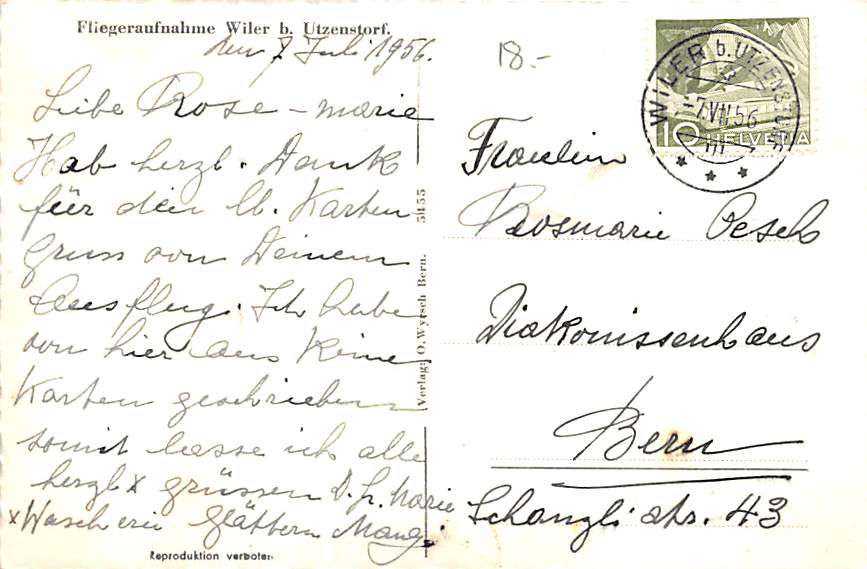 Fliegeraufnahme Wiler b. Utzenstorf.
den 7. Juli 1956.
Liebe Rose-marie
Hab herzl. Dank
für den lb. Karten
Gruss von Deinem
Ausflug. Ich habe
von hier aus keine
Karten geschrieben
somit lasse ich alle
herzl x grüssen D. Marie
x Wascherei Glättern Mange
Reproduktion verboten
5455
Verlag: O. Wyrsch Bern.
18.-
WILER b. UTZENSTORF
-7.VII.56
10 HELVETIA
Fräulein
Rosmarie Oesch
Diakonissenhaus
Bern
Schänzlistr. 43